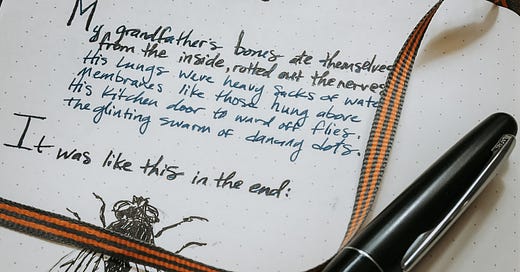 My grandfather's bones ate themselves
from the inside, rotted out the nerves
His lungs were heavy sacks of water
Membranes like those hung above
His kitchen door to ward off flies.
the glinting swarm of dancing dots.
It was like this in the end: